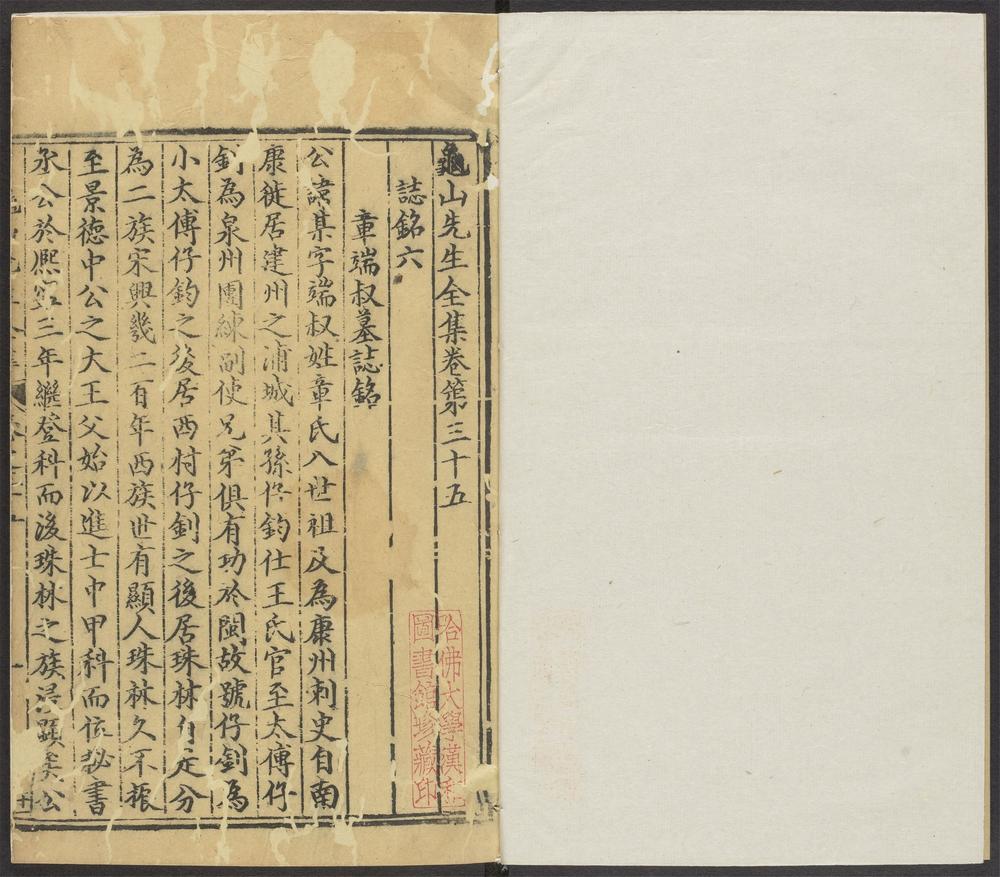 龜山先生全集卷第三十五
誌銘六
章端叔墓誌銘
公諱某字端叔姓章氏八世祖及為康州刺史自南
康徙居建州之浦城其孫仔鈞仕王氏官至太傅仔
釗為泉州團練副使兄弟俱有功於閩故號仔釗為
小太傅仔鈞之後居西村仔釗之後居珠林自是分
為二族宋興幾二百年西族世有顯人珠林久不振
至景德中公之大王父始以進士中甲科而位秘書
丞公於熈寧三年繼登科而後珠林之族浸顯矣公
哈佛大學漢和
圖書館珍藏印